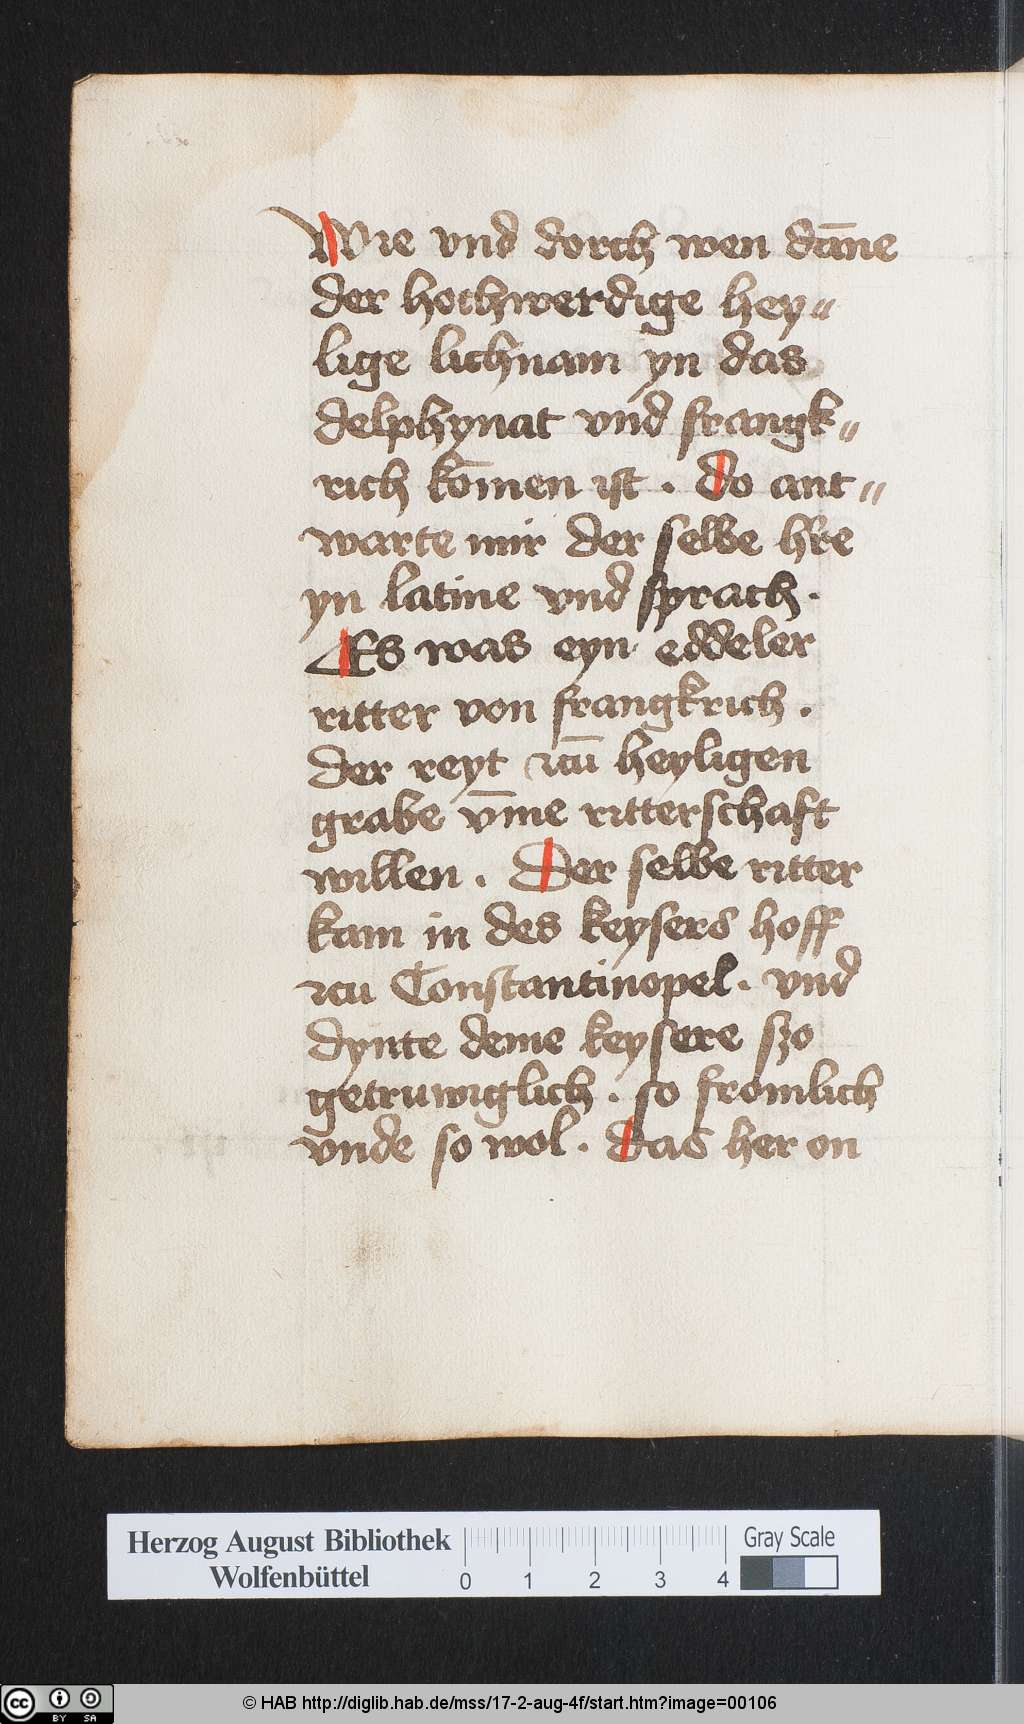 Wie vnd dorch wen dāne
der hochwerdige hey〃
lige lichnam yn das
delphynat vnd frangk〃
rich kōmen ist . do ant〃
warte mir der selbe hr̄e
yn latine vnd sprach .
Es was eyn eddeler
ritter von frangkrich .
der reyt zcū heyligen
grabe vm̄e ritterschaft
willen . Der selbe ritter
kam in des keysers hoff
zcu Constantinopel . vnd
dynte deme keysere szo
getruwiglich . so fromlich
vnde so wol . das her on
Herzog August Bibliothek
Wolfenbüttel
0 1 2 3 4
Gray Scale
cc BY SA
© HAB http://diglib.hab.de/mss/17-2-aug-4f/start.htm?image=00106